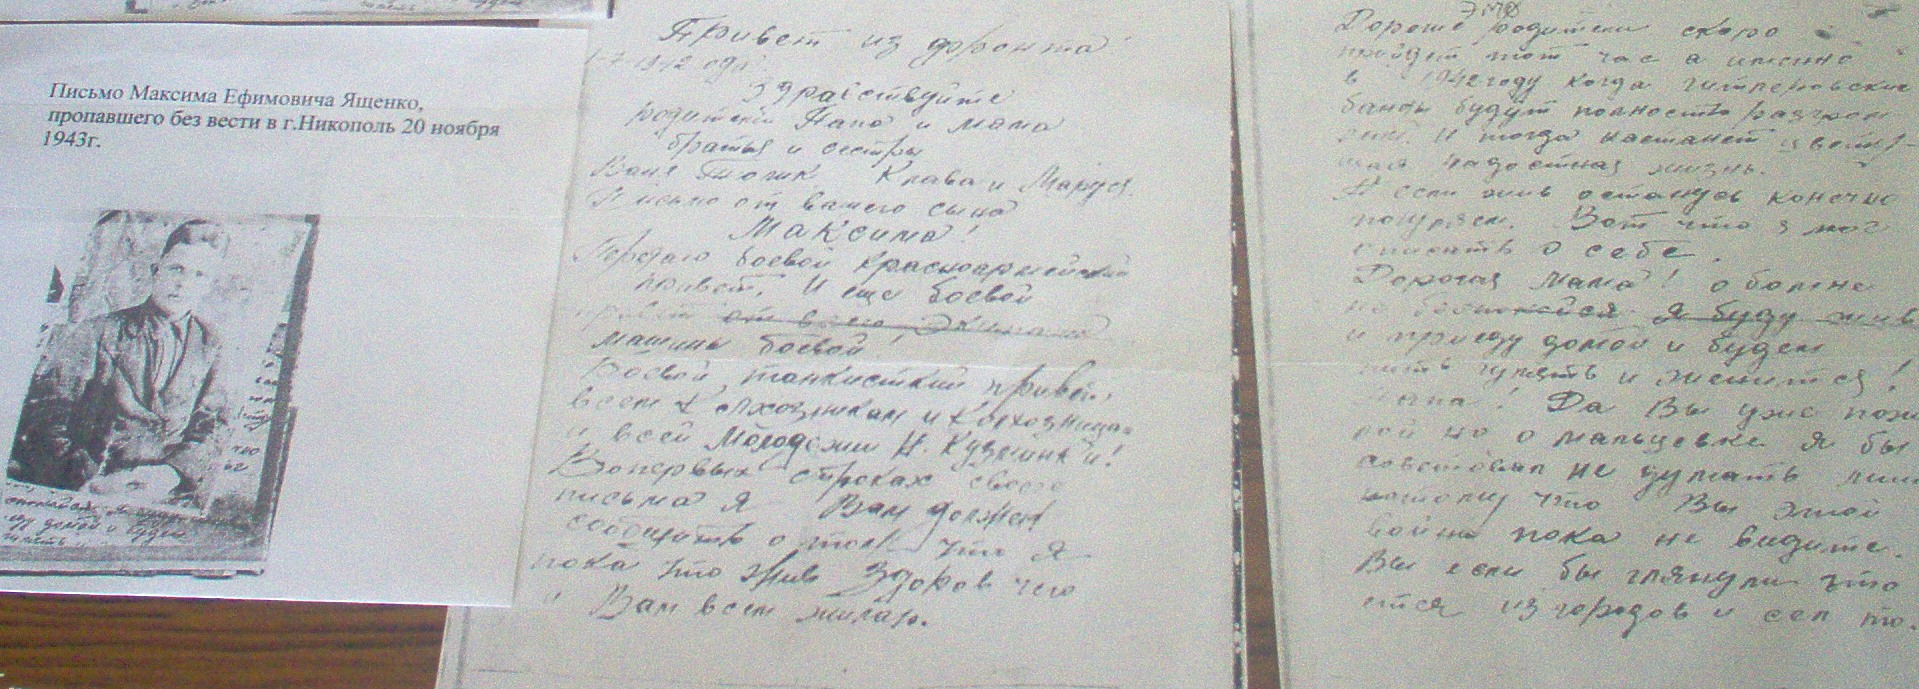 Письмо Максима Ефимовича Ященко,
пропавшего без вести в г.Никополь 20 ноября
1943г.
Привет из фронта
1942 года
Здравствуйте
родители Папа и мама
братья и сестры
Ваня Толик Клава и Маруся
Письмо от вашего сына
Максима!
Передаю боевой красноармейский
привет. И еще боевой
привет от всего экипажа
машины боевой!
Боевой танкисткий привет,
всем колхозникам и колхозницам
и всей молодежи Н. Кузминки!
Вопервых строках своего
письма я Вам должен
сообщить о том что я
пока что жив здоров чего
и Вам всем жилаю.
Дороие родители скоро
прийдет тот час а именно
в 1942 году когда гитлеровские
банды будут полностю разгром
лены. И тогда настанет цвету-
щая радостная жизнь.
А если жив останусь конечно
погуляем. Вот что я мог
описать о себе.
Дорогая мама! о болше
не беспокойся я буду жив
и прииду домой и будем
пить гулять и женится!
Папа! Да Вы уже пожи
лой но о мальцевке я бы
советовал не думать
потому что Вы этой
войны пока не видите.
Вы если бы глянули что
ется из городов и сел то.
спокойся я буду
еду домой и будем